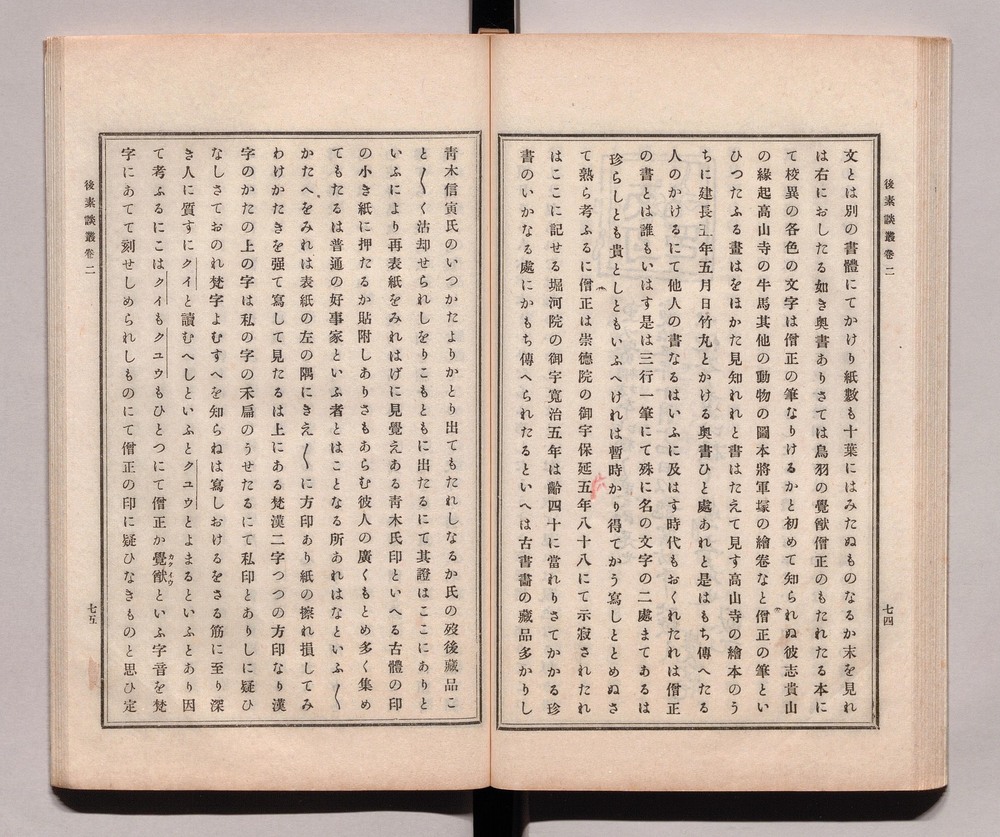 後素談叢卷二
七四
文とは別の書體にてかけり紙數も十葉にはみたぬものなるか末を見れ
は右におしたる如き奥書ありさては鳥羽の覺猷僧正のもたれたる本に
て校異の各色の文字は僧正の筆なりけるかと初めて知られぬ彼志貴山
の緣起高山寺の牛馬其他の動物の圖本將軍塚の繪卷なと僧正の筆とい
ひつたふる畫はをほかた見知れれと書はたえて見す高山寺の繪本のう
ちに建長五年五月日竹丸とかける奥書ひと處あれと是はもち傳へたる
人のかけるにて他人の書なるはいふに及はす時代もおくれたれは僧正
の書とは誰もいはす是は三行一筆にて殊に名の文字の二處まてあるは
珍らしとも貴としともいふへけれは暫時かり得てかう寫しととめぬさ
て熟ら考ふるに僧正は崇德院の御宇保延五年八十八にて示寂されたれ
はここに記せる堀河院の御宇寬治五年は齡四十に當れりさてかかる珍
書のいかなる處にかもち傳へられたるといへは古書畵の藏品多かりし
靑木信寅氏のいつかたよりかとり出てもたれしなるか氏の歿後藏品こ
と〱く沽却せられしをりこもともに出たるにて其證はここにありと
いふにより再表紙をみれはけに見覺えある靑木氏印といへる古體の印
の小き紙に押たるか貼附しありさもあらむ彼人の廣くもとめ多く集め
てもたるは普通の好事家といふ者とはことなる所あれはなといふ〱
かたへをみれは表紙の左の隅にきえ〱に方印あり紙の擦れ損してみ
わけかたきを强て寫して見たるは上にある梵漢二字つつの方印なり漢
字のかたの上の字は私の字の禾扁のうせたるにて私印とありしに疑ひ
なしさておのれ梵字よむすへを知らねは寫しおけるをさる筋に至り深
き人に質すにクイと讀むへしといふとクユウとよまるといふとあり因
て考ふるにこはクイもクユウもひとつにて僧正か覺猷カクイウといふ字音を梵
字にあてて刻せしめられしものにて僧正の印に疑ひなきものと思ひ定
後素談叢卷二
七五